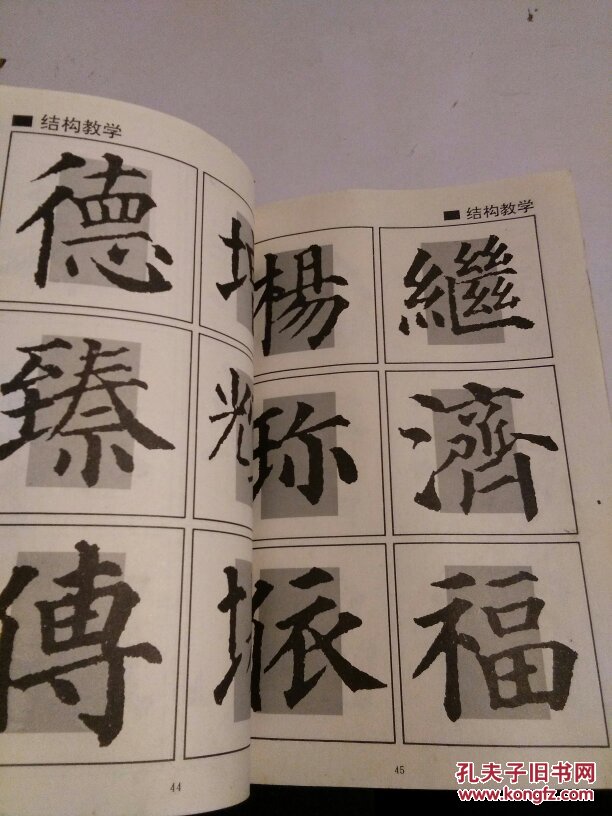 结构教学
德
臻
傳
44
结构教学
楊 繼
珎 濟
依 福
45
孔夫子旧书网
www.kongfz.com